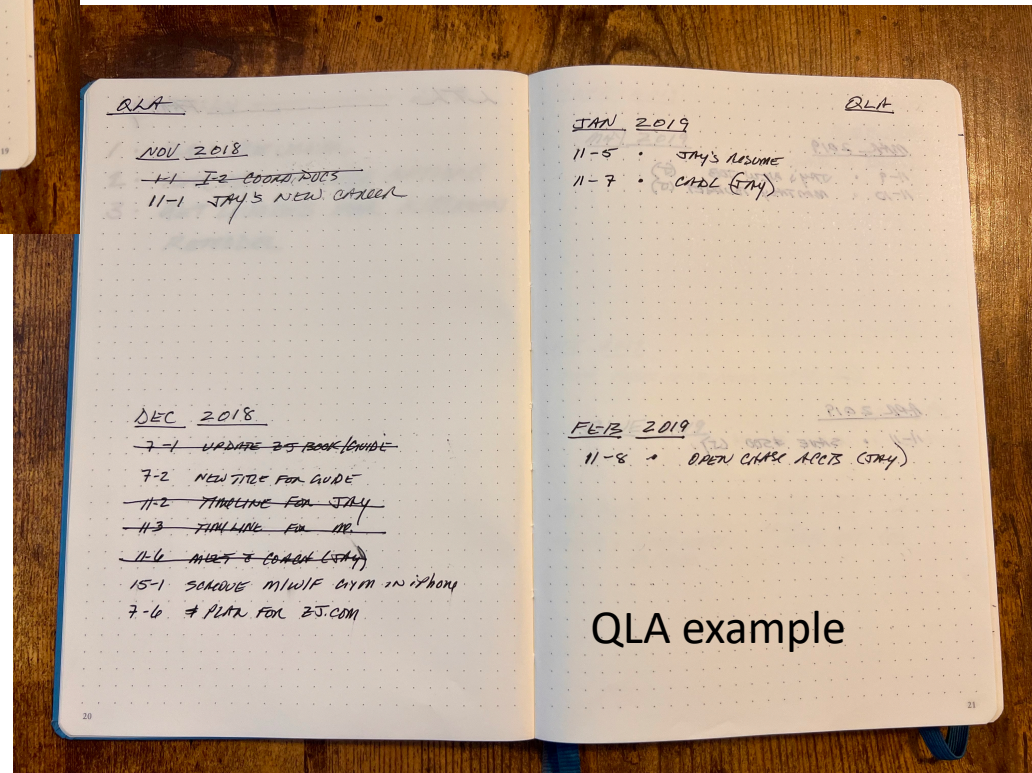 19
QLA
NOV 2018
1-1 I-2 COORD DOCS
11-1 JAY'S NEW CAREER
DEC 2018
7-1 UPDATE ZJ BOOK/GUIDE
7-2 NEW TITLE FOR GUIDE
11-2 TIMELINE FOR JAY
11-3 TIMELINE FOR
11-6 MEET COACH (JAY)
15-1 M/W/F GYM IN iPhone
7-6 PLAN FOR ZJ.COM
20
QLA
JAN 2019
11-5 • JAY'S RESUME
11-7 • CADL (JAY)
FEB 2019
11-8 • OPEN CHASE ACCTS (JAY)
QLA example
21